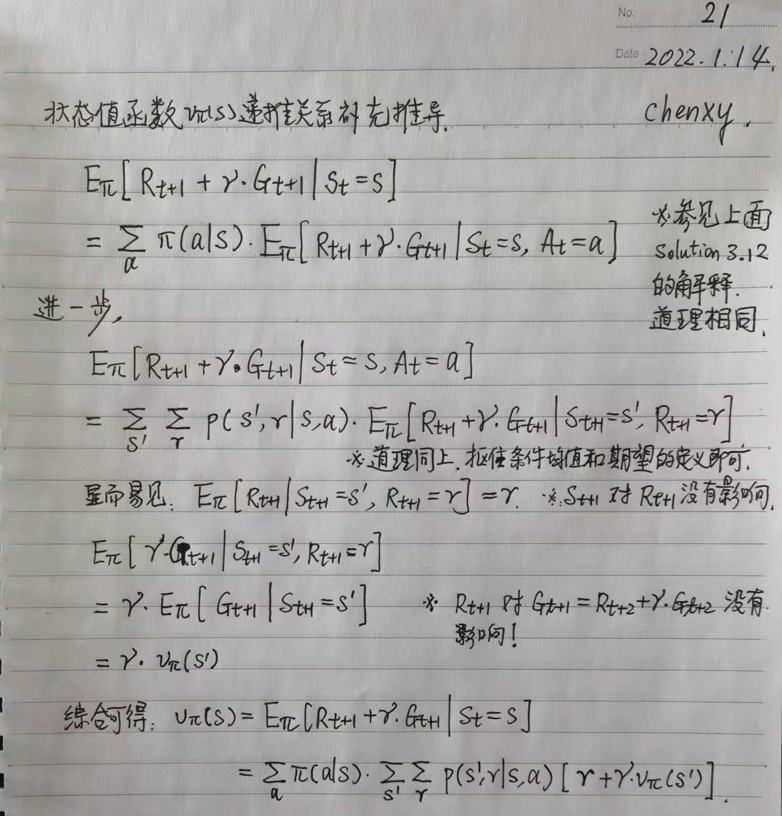 No. 21
Date 2022.1.14.
chenxy.
状态值函数 vπ(s) 递推关系补充推导.
Eπ[Rt+1 + γ·Gt+1 | St = s]
= Σa π(a|s)·Eπ[Rt+1 + γ·Gt+1 | St = s, At = a]
※参见上面
Solution 3.12
的解释.
道理相同.
进一步,
Eπ[Rt+1 + γ·Gt+1 | St = s, At = a]
= Σs' Σr p(s', r | s, a)·Eπ[Rt+1 + γ·Gt+1 | St+1 = s', Rt+1 = r]
※道理同上, 抠住条件均值和期望的定义即可.
显而易见: Eπ[Rt+1 | St+1 = s', Rt+1 = r] = r. ※St+1 对 Rt+1 没有影响.
Eπ[γ·Gt+1 | St+1 = s', Rt+1 = r]
= γ·Eπ[Gt+1 | St+1 = s'] ※ Rt+1 对 Gt+1 = Rt+2 + γ·Gt+2 没有
影响!
= γ·vπ(s')
综合可得: vπ(s) = Eπ[Rt+1 + γ·Gt+1 | St = s]
= Σa π(a|s)·Σs' Σr p(s', r | s, a) [r + γ·vπ(s')].